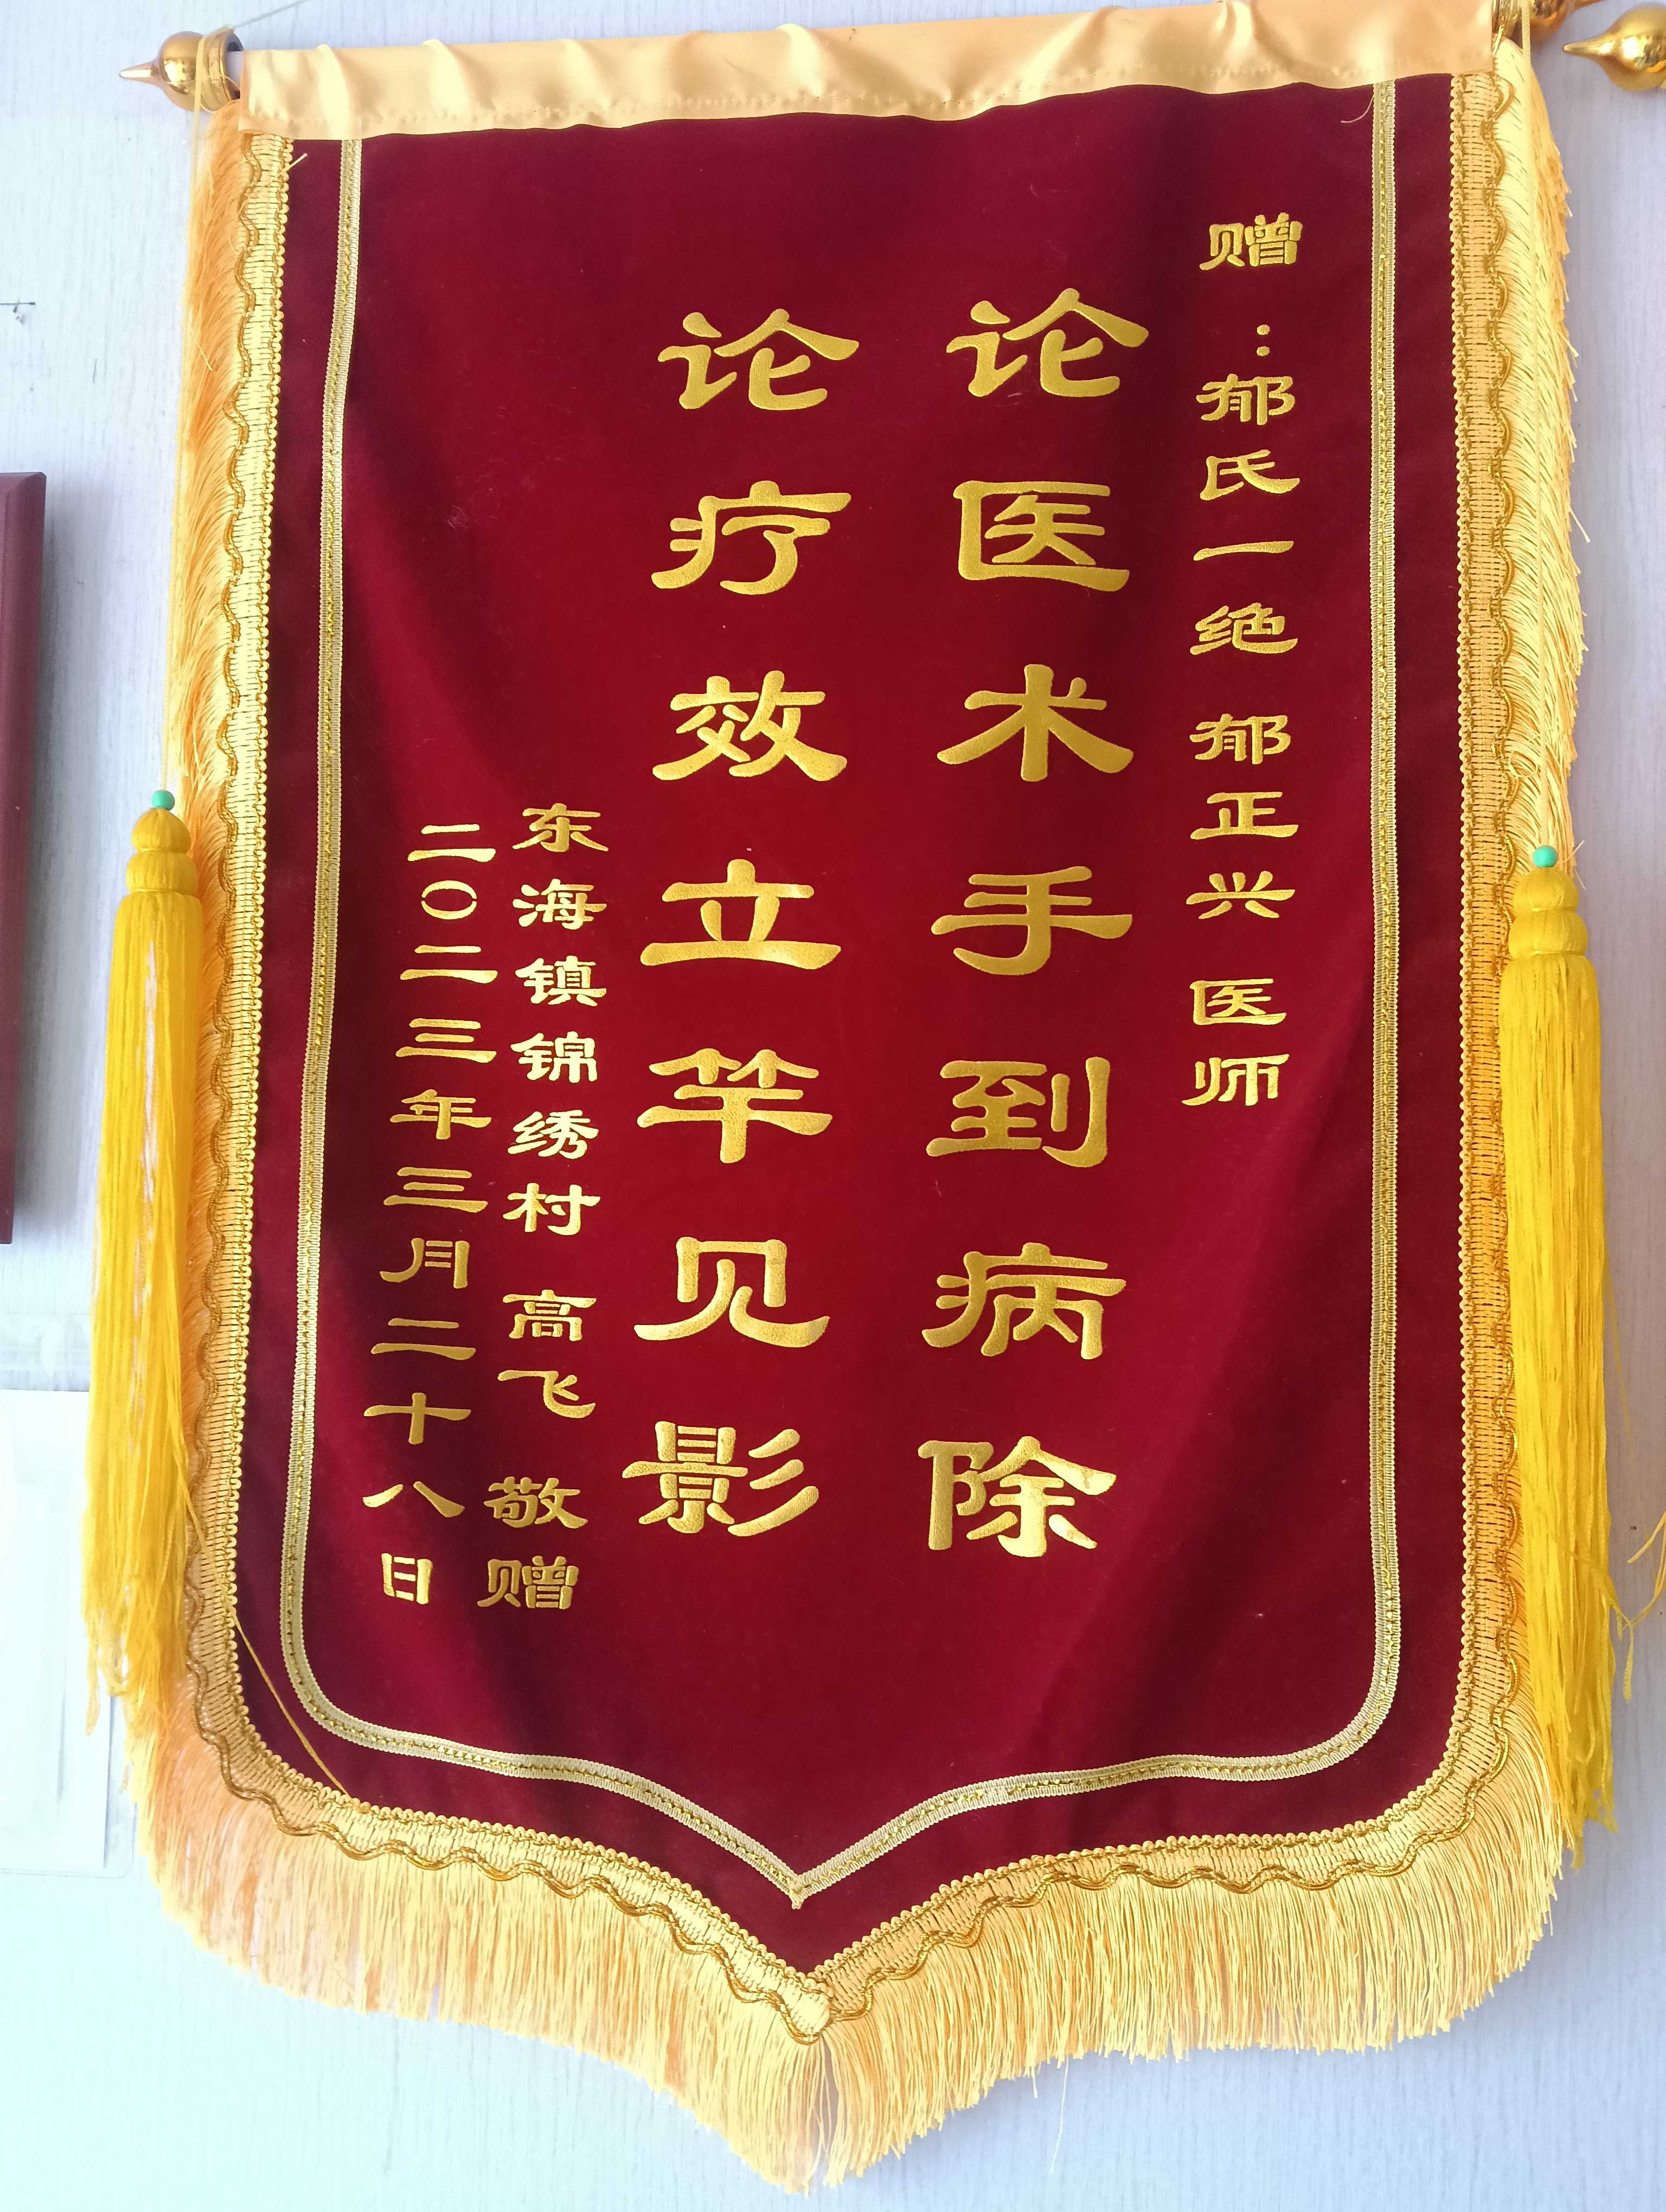 赠：郁氏一绝 郁正兴 医师
论医术手到病除
论疗效立竿见影
东海镇锦绣村 高飞 敬赠
二〇二三年三月二十八日